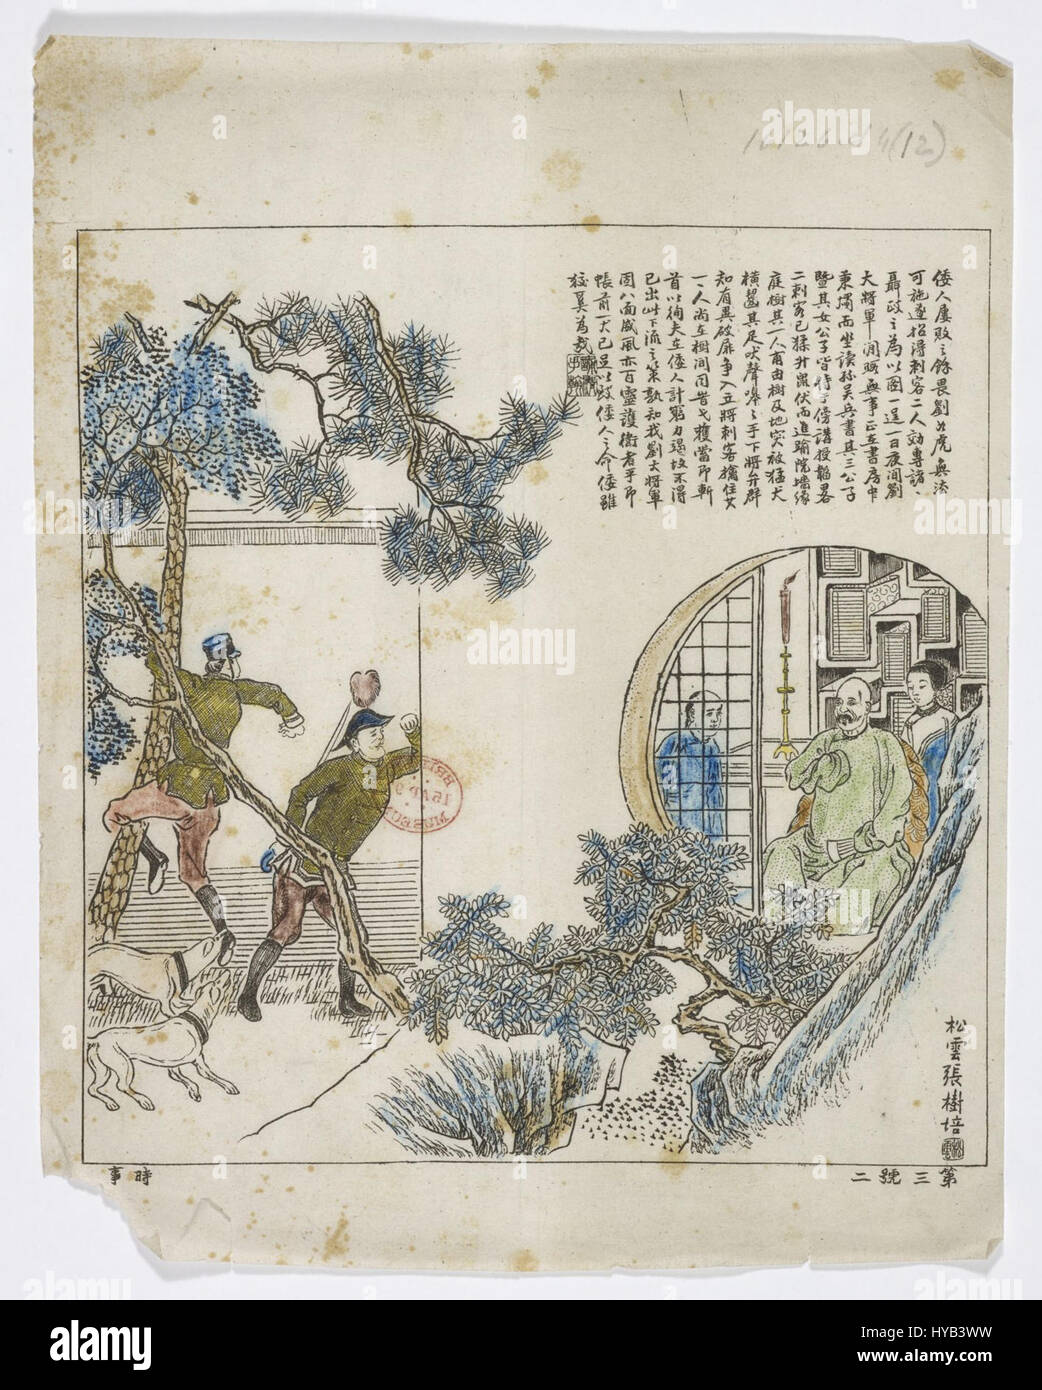 倭人屢敗之餘畏劉如虎無法
可施遂招得刺客二人効專諸、
聶政之為以圖一逞一日夜間劉
大將軍閒暇無事正在書房中
秉燭而坐讀孫吳兵書其三公子
暨其女公子皆侍立傍講授韜畧
二刺客已猱升鼠伏而進踰院墻緣
庭樹其一人甫由樹及地突被猛犬
橫嚙其足吠聲嘷之手下將弁群
知有異破扉爭入立將刺客擒住其
一人尚在樹間同皆弋獲當即斬
首以徇夫在倭人計窮力竭故不得
已出此下流之策孰知我劉大將軍
固八面威風亦百靈護衛者乎即
帳前一犬已足以致倭人之命倭雖
狡奚為哉
松雲張樹培
第三號二
時事
(12)
alamy
alamy stock photo
HYB3WW
www.alamy.com